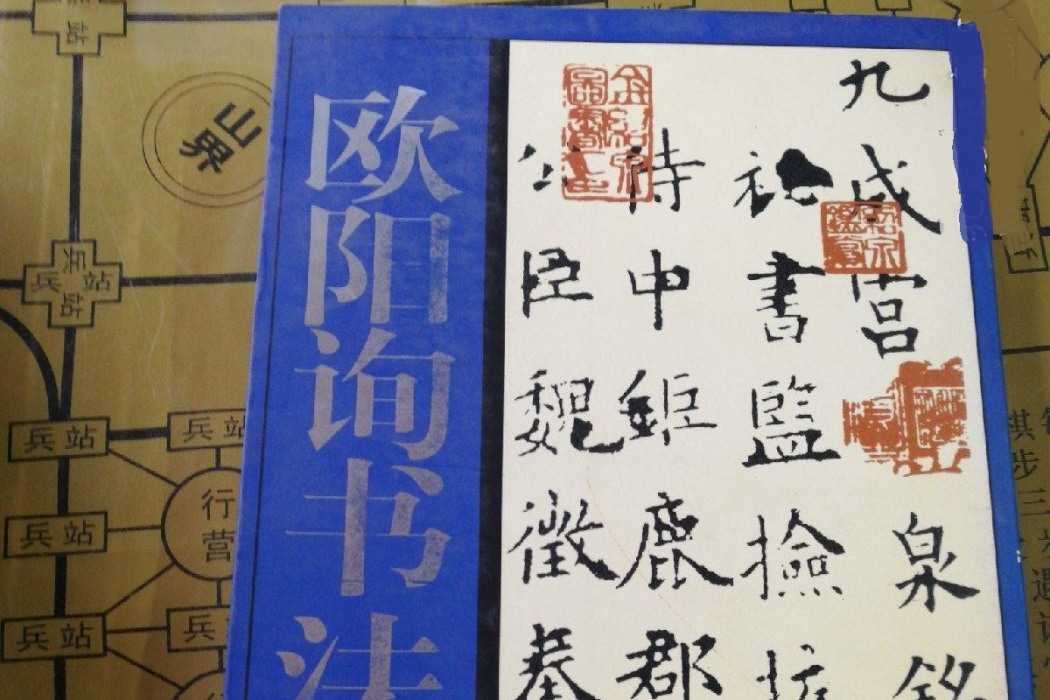 欧阳询书法
九成宮
泉銘
祕書監撿校
侍中鉅鹿郡
公臣魏徵奉
山界
兵站
兵站
兵站
兵站
兵站
兵站
行营